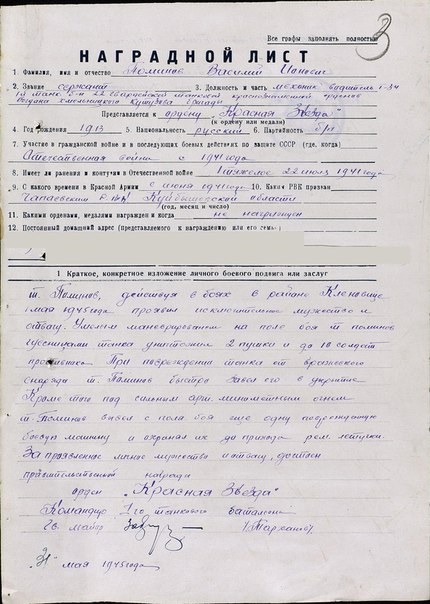 3
Все графы заполнять полностью
НАГРАДНОЙ ЛИСТ
1. Фамилия, имя и отчество Поминов Василий
2. Звание сержант 3. Должность и часть механик водитель Т-34
1й танк. б-н 22 гвардейской танковой краснознаменной орденов
Богдана Хмельницкого Кутузова бригады
Представляется к ордену „Красная Звезда"
(к ордену или медали)
4. Год рождения 1913 5. Национальность русский 6. Партийность б/п
7. Участие в гражданской войне и в последующих боевых действиях по защите СССР (где, когда)
Отечественная война с 1941 года
8. Имеет ли ранения и контузии в Отечественной войне тяжелое 22 1941 года
9. С какого времени в Красной Армии с июня 1941 года 10. Каким РВК призван
Чапаевским РВК Куйбышевской области
(год, месяц и число)
11. Какими орденами, медалями награжден и когда не награжден
12. Постоянный домашний адрес (представляемого к награждению или его семьи)
1 Краткое, конкретное изложение личного боевого подвига или заслуг
т. Поминов, действуя в боях в районе
мая 1945 года проявил исключительно мужество и
отвагу. Умелым маневрированием на поле боя т. Поминов
гусеницами танка уничтожил 2 пушки и до 10 солдат
противника. При повреждении танка от вражеского
снаряда т. Поминов быстро завел его в укрытие
Кроме того под сильным арт. минометным огнем
т. Поминов вывел с поля боя еще одну поврежденную
боевую машину и охранял их до прихода рем. летучки.
За проявленное личное мужество и отвагу, достоин
правительственной награды
орден „Красная Звезда"
Командир 1го танкового батальона
Гв. майор
31 мая 1945 года